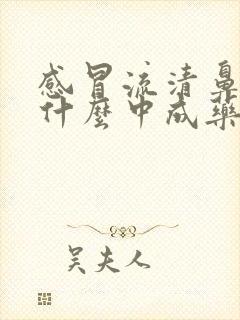 感冒流清鼻
什麽中成藥
吴夫人